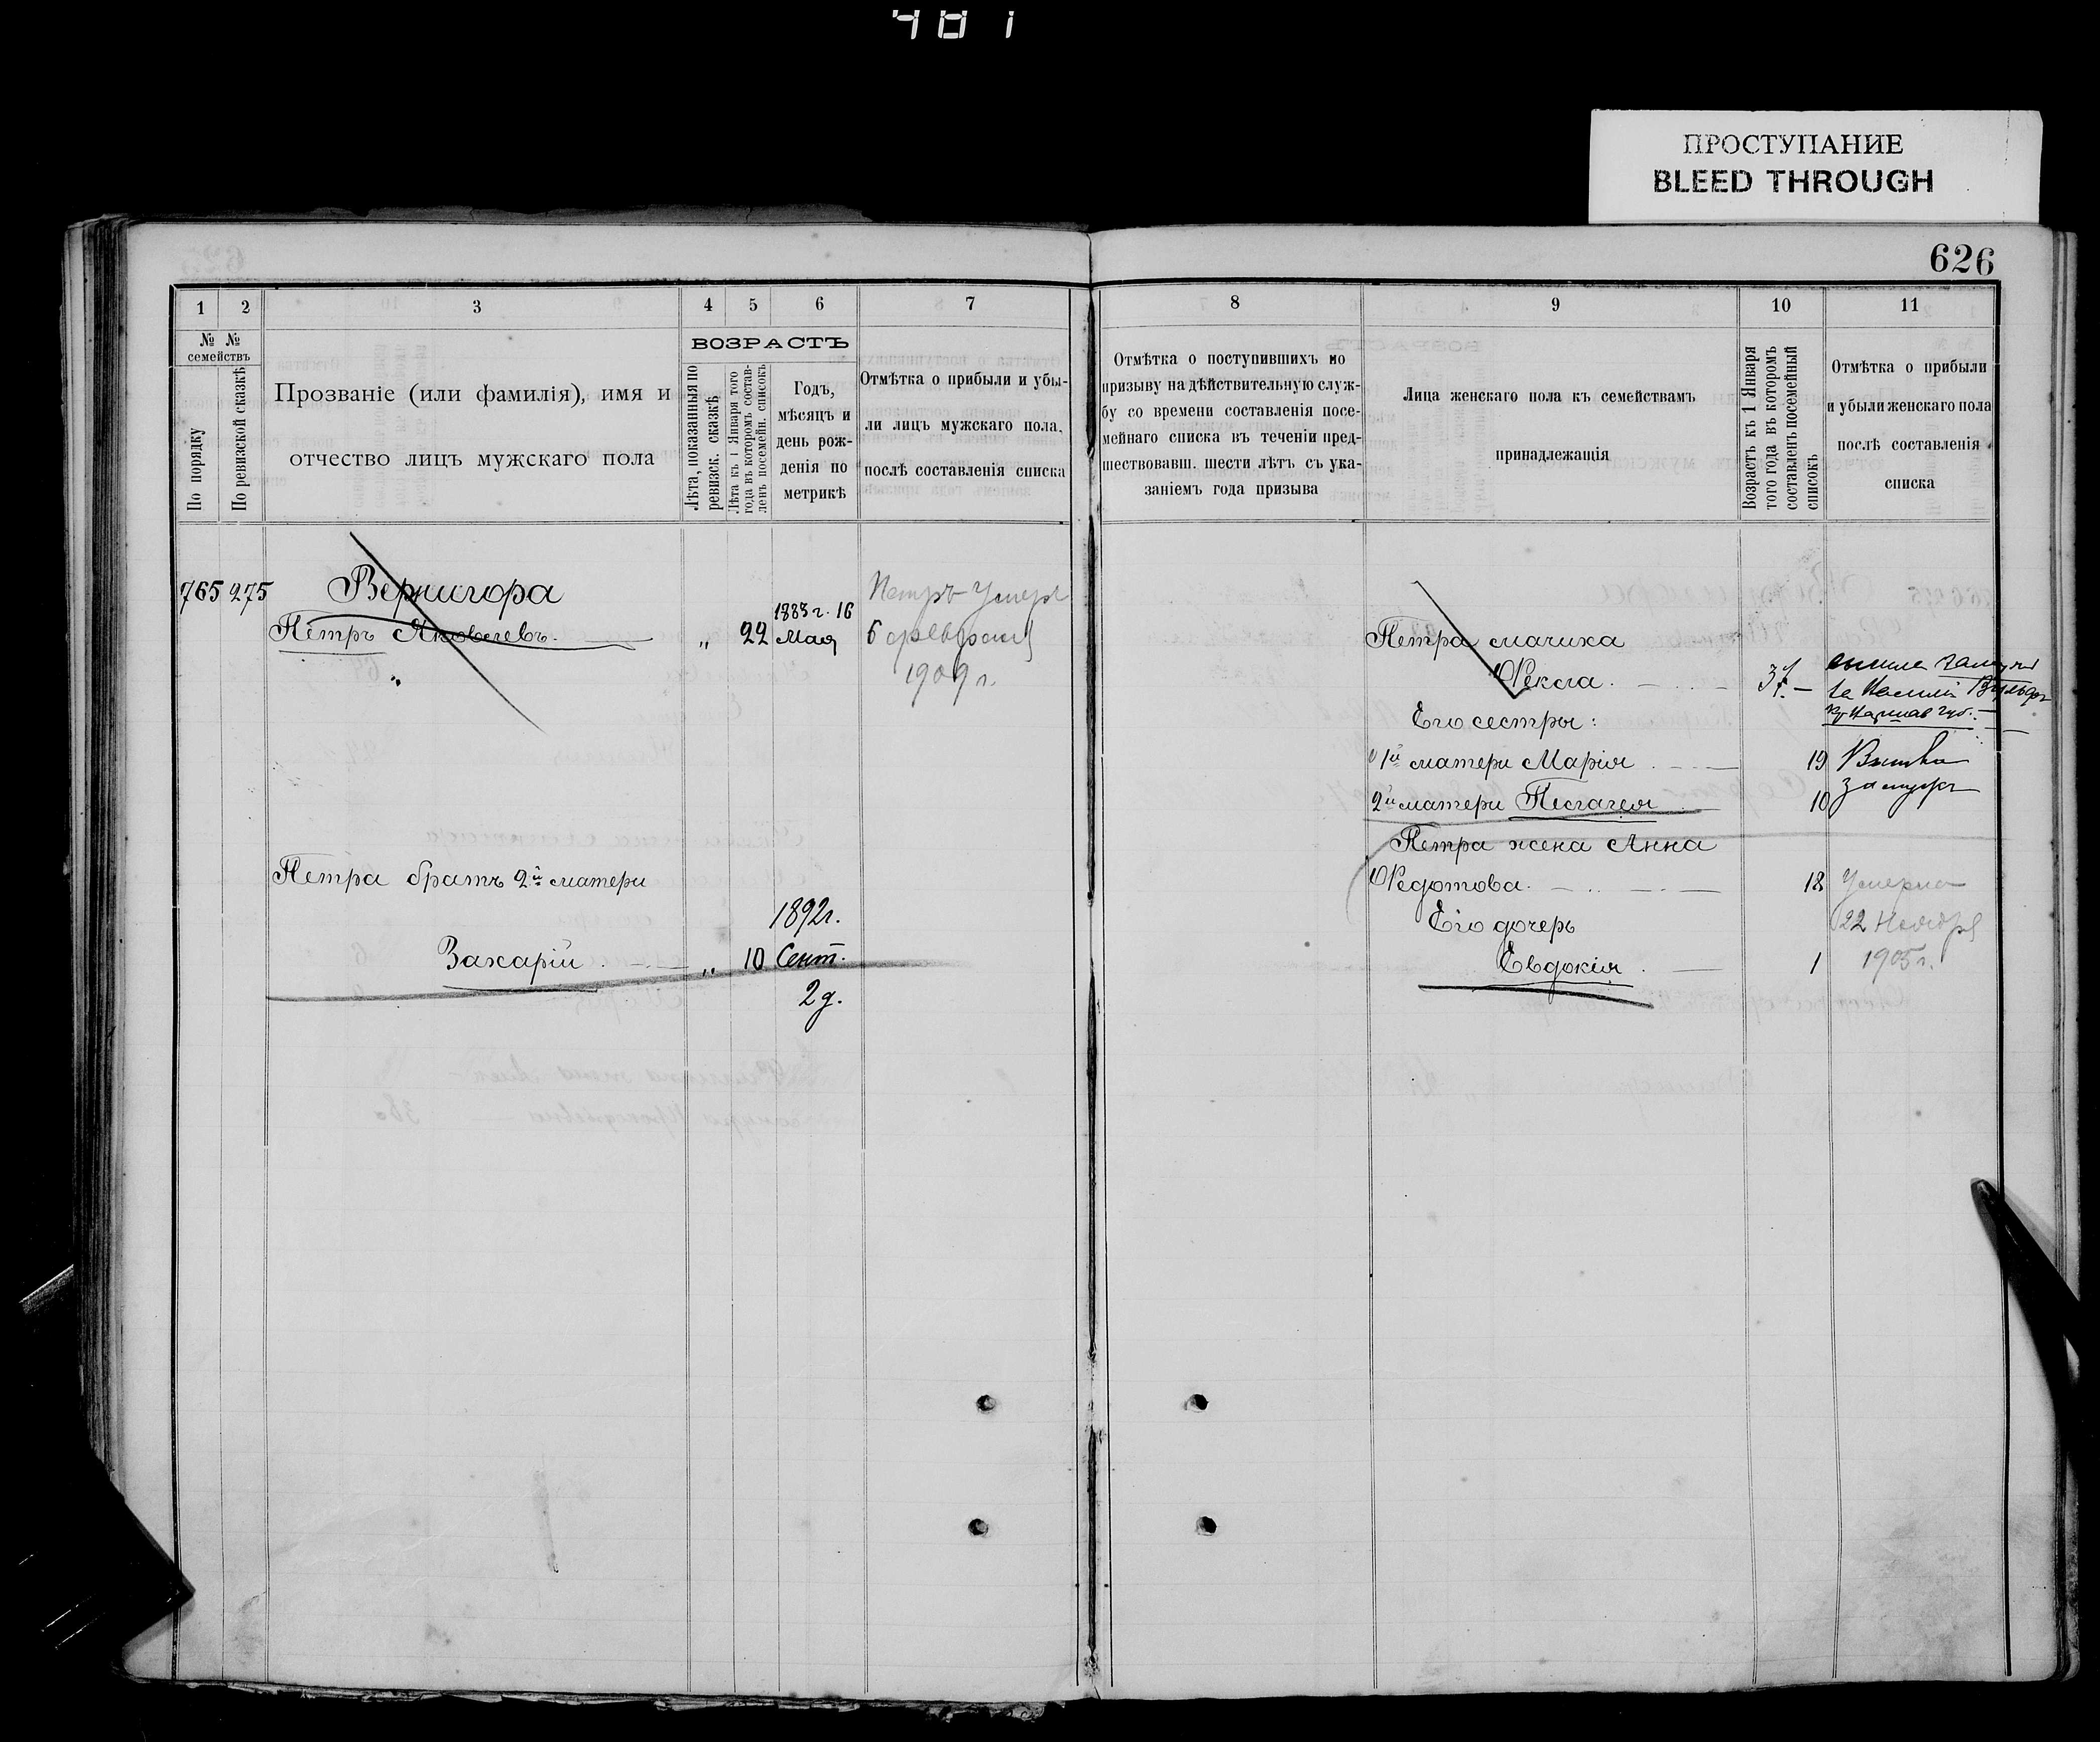 481
ПРОСТУПАНИЕ
BLEED THROUGH
626
1 2 3 4 5 6 7
№ № семействъ
По порядку
По ревизской сказкѣ
Прозваніе (или фамилія), имя и
отчество лицъ мужскаго пола
ВОЗРАСТЪ
Лѣта, показанныя по
ревизск. сказкѣ
Лѣта къ 1 Января того
года въ которомъ состав-
ленъ посемейн. списокъ
Годъ,
мѣсяцъ и
день рож-
денія по
метрикѣ
Отмѣтка о прибыли и убы-
ли лицъ мужскаго пола,
послѣ составленія списка
765 275 Вернигора
Петръ Яковлевъ. „ 22 1883 г. 16 Мая
„
Петръ Умеръ
6 февраля
1909 г.
Петра братъ 2й матери
Захарій „ 10 1892г. Сент. 2 д.
8 9 10 11
Отмѣтка о поступившихъ по
призыву на дѣйствительную служ-
бу со времени составленія посе-
мейнаго списка въ теченіи пред-
шествовавш. шести лѣтъ съ ука-
заніемъ года призыва
Лица женскаго пола къ семействамъ
принадлежащія
Возрастъ къ 1 Января
того года въ которомъ
составленъ посемейный
списокъ
Отмѣтка о прибыли
и убыли женскаго пола
послѣ составленія
списка
Петра мачиха
Фекла. 37
за
Его сестры:
1й матери Марія 19 Вышла
2й матери Пелагея 10 замужъ
Петра жена Анна
Федотова. 18 Умерла
Его дочерь 22 Ноября
Евдокія 1 1905 г.